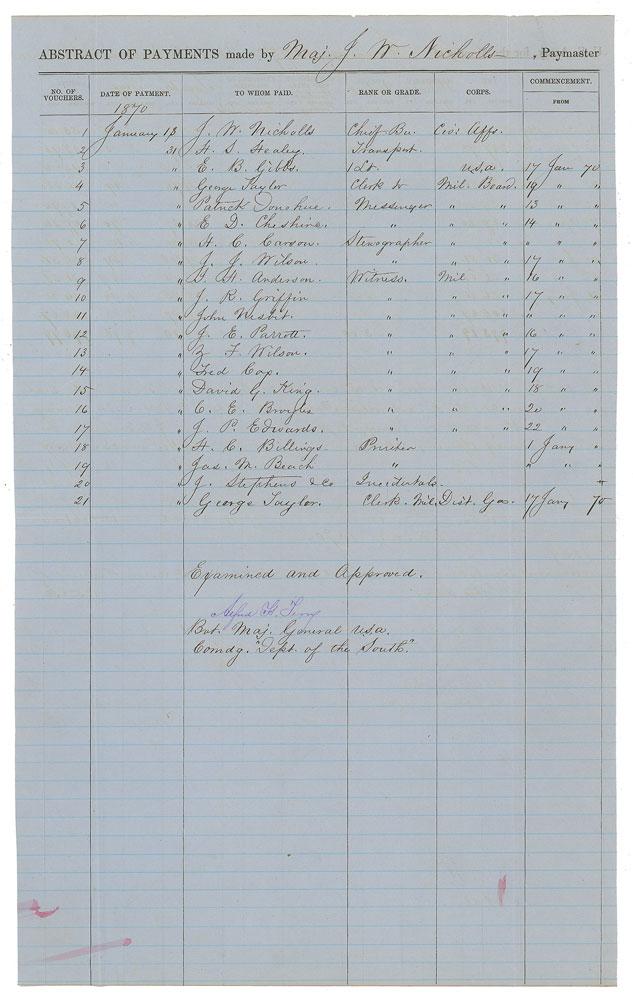 ABSTRACT OF PAYMENTS made by Maj. J. W. Nicholls, Paymaster
NO. OF VOUCHERS. DATE OF PAYMENT. TO WHOM PAID. RANK OR GRADE. CORPS. COMMENCEMENT. FROM
1870
1 January 13 J. W. Nicholls Chief Bu. Civ: Affs.
2 " 31 H. S. Healey Transport.
3 " E. B. Gibbs. 1 Lt. U.S.A. 17 Jan 70
4 " George Taylor Clerk to Mil. Board. 19 " "
5 " Patrick Donohue. Messenger " " 13 " "
6 " E. D. Cheshire. " " " 14 " "
7 " H. C. Carson. Stenographer " " " " "
8 " J. J. Wilson. " " " 17 " "
9 " H. Anderson. Witness. Mil " 16 " "
10 " J. R. Griffin " " " 17 " "
11 " John Nesbit. " " " " " "
12 " J. E. Parrott. " " " 16 " "
13 " F. Wilson. " " " 17 " "
14 " Fred Cox. " " " 19 " "
15 " David G. King. " " " 18 " "
16 " C. E. Broyles " " " 20 " "
17 " J. P. Edwards. " " " 22 " "
18 " H. C. Billings. 1 Jany "
19 " Jas. M. Beach " " " "
20 " J. Stephens & Co Incidentals. "
21 " George Taylor. Clerk. Mil. Dist. Ga. 17 Jany 70
Examined and Approved.
Alfred H. Terry
Bvt. Maj. General U.S.A.
Comdg. "Dept. of the South."